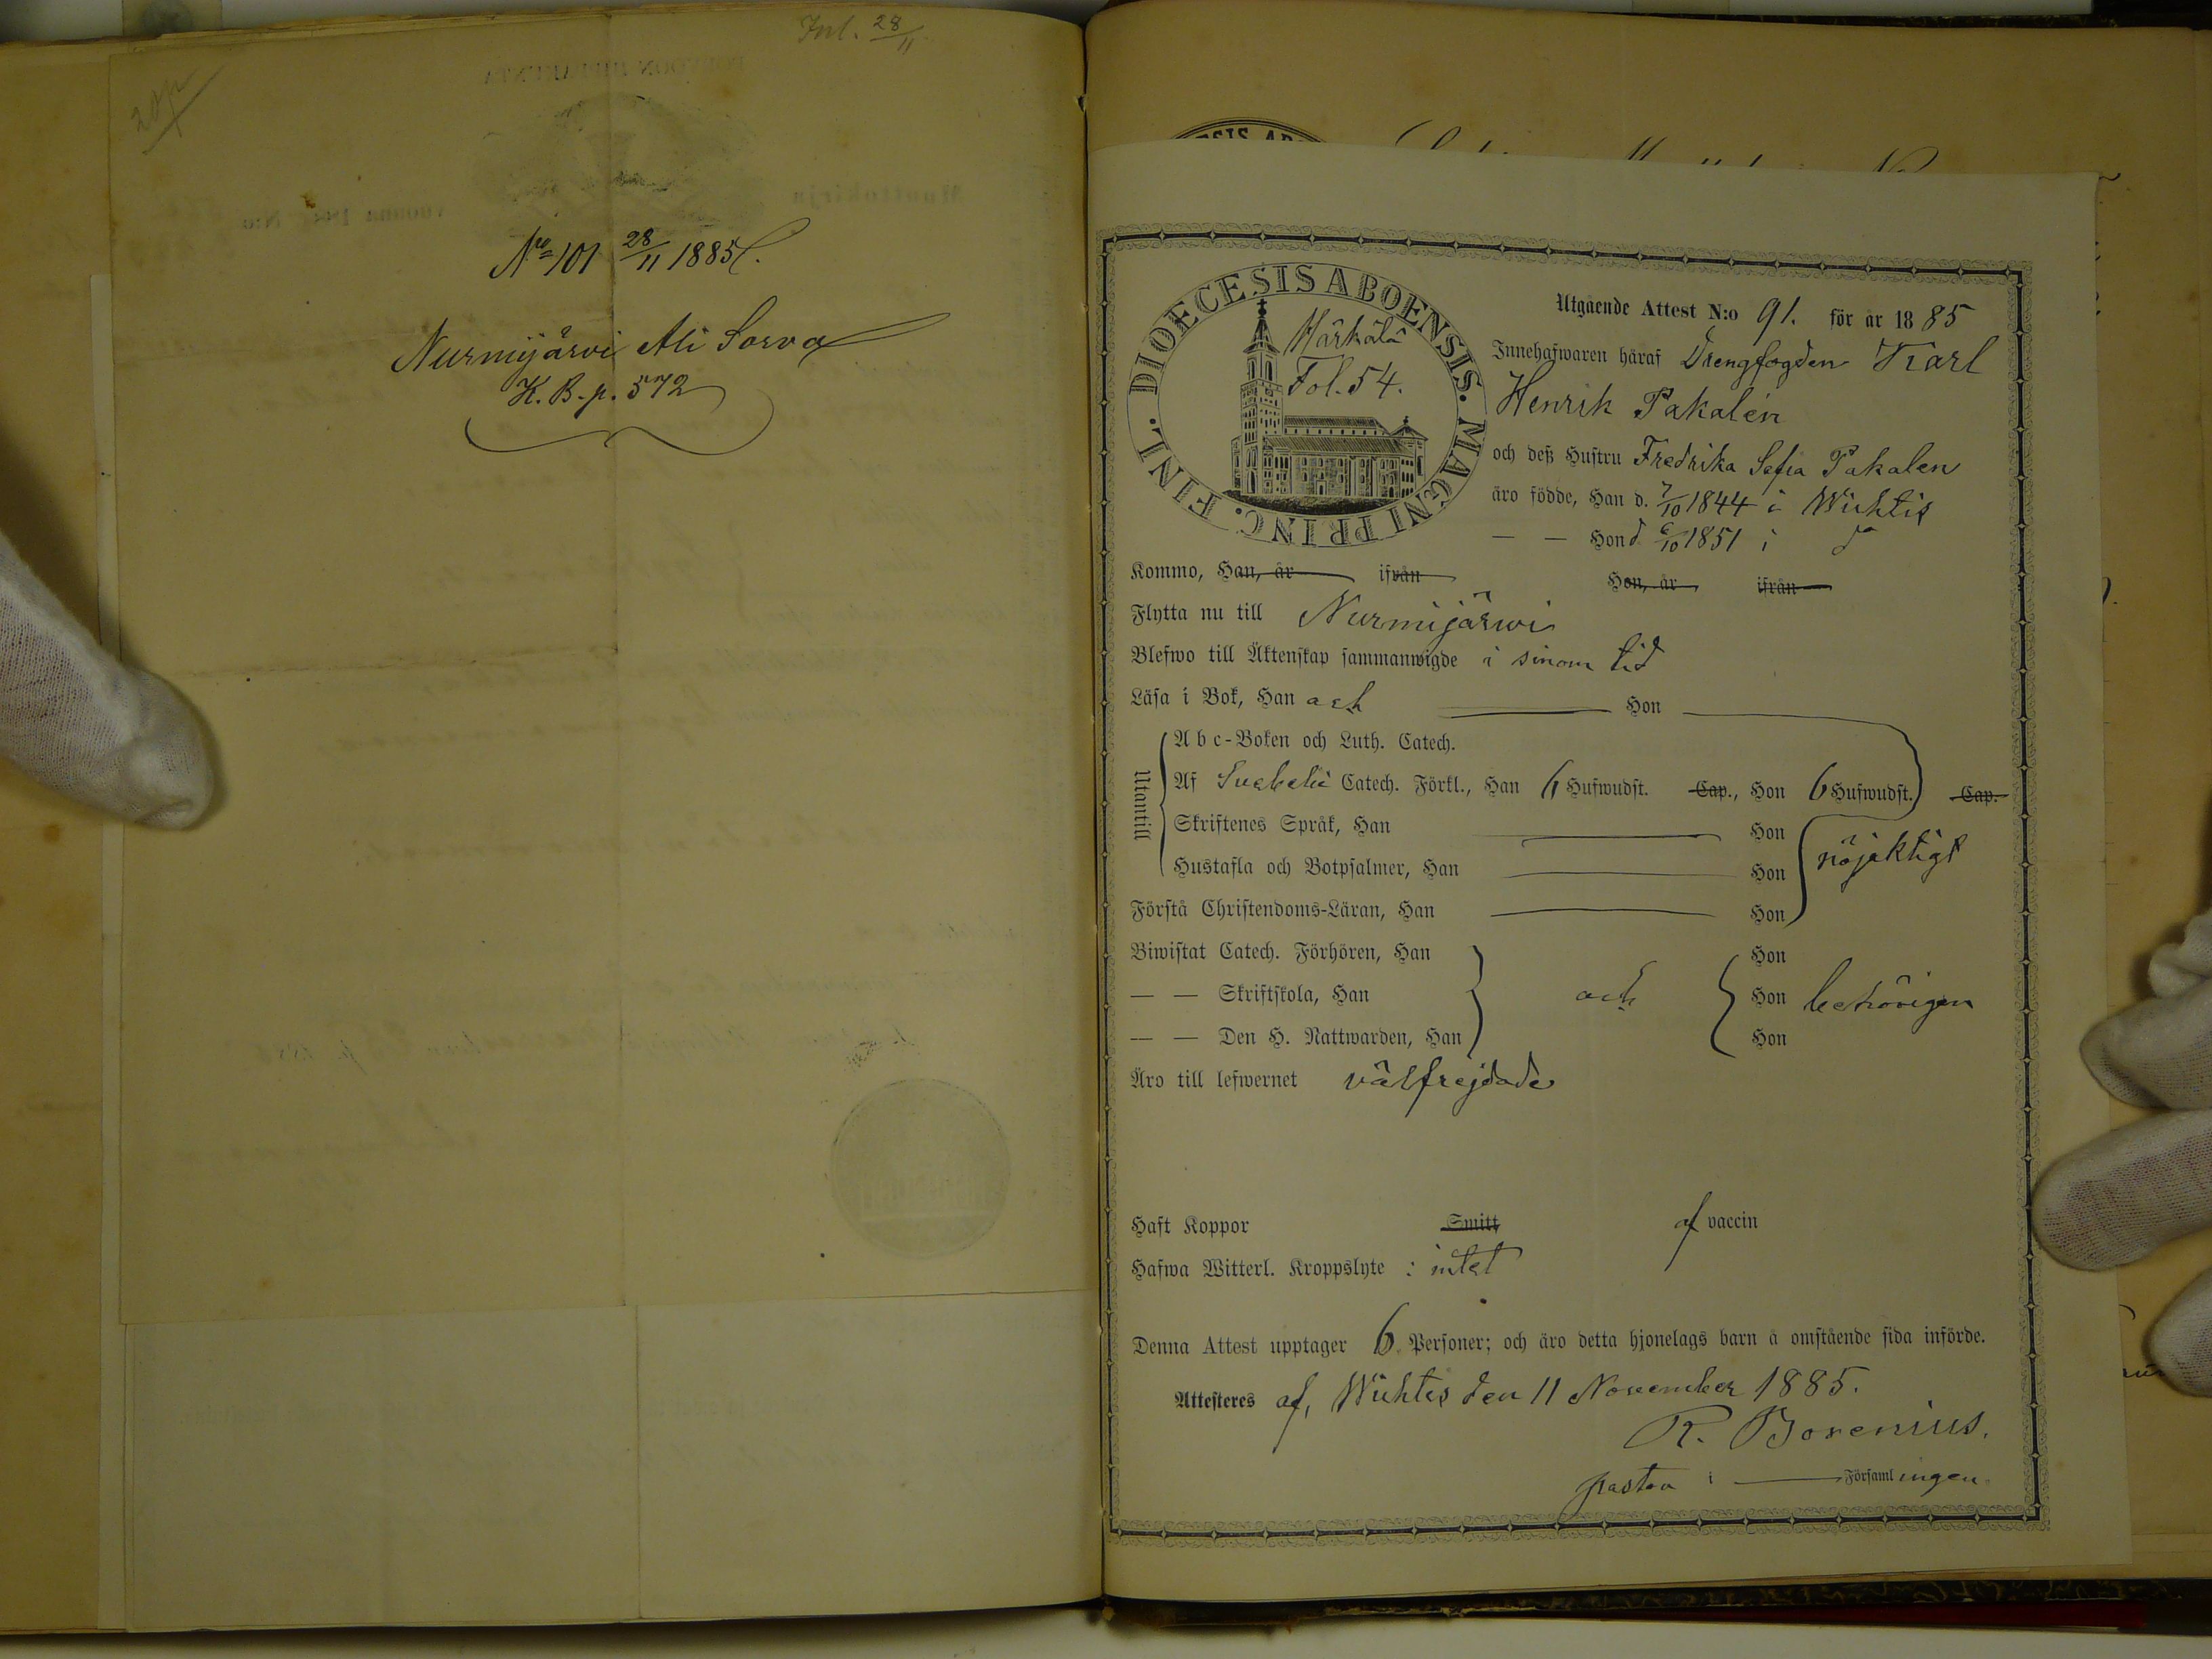 Inl. 28/11.
No 101 28/11 1885
Nurmijärvi Ali Sorva
K. B. p. 572
DIOECESIS ABOENSIS. MAGNI PRINC. FINL.
Härkälä
Fol. 54.
Utgående Attest N:o 91. för år 1885
Innehafwaren häraf Drengfogden Karl
Henrik Pakalén
och deß Hustru Fredrika Sofia Pakalen
äro födde, Han d. 7/10 1844 i Wichtis
— — Hon d. 6/10 1851 i d
Kommo, Han, år ifrån Hon, år ifrån
Flytta nu till Nurmijärwi
Blefwo till Äktenskap sammanwigde i sinom tid
Läsa i Bok, Han och Hon
Utantill
Abc-Boken och Luth. Catech.
Af Svebelii Catech. Förkl., Han 6 Hufwudst. Cap., Hon 6 Hufwudst. Cap.
Skriftenes Språk, Han Hon
Hustafla och Botpsalmer, Han Hon nöjaktigt
Förstå Christendoms-Läran, Han Hon
Biwistat Catech. Förhören, Han Hon
— — Skriftskola, Han och Hon behörigen
— — Den H. Nattwarden, Han Hon
Äro till lefwernet välfrejdade
Haft Koppor Smitt af vaccin
Hafwa Witterl. Kroppslyte : intet
Denna Attest upptager 6 Personer; och äro detta hjonelags barn å omstående sida införde.
Attesteres af, Wichtis den 11 November 1885.
R. Borenius.
pastor i Församlingen.